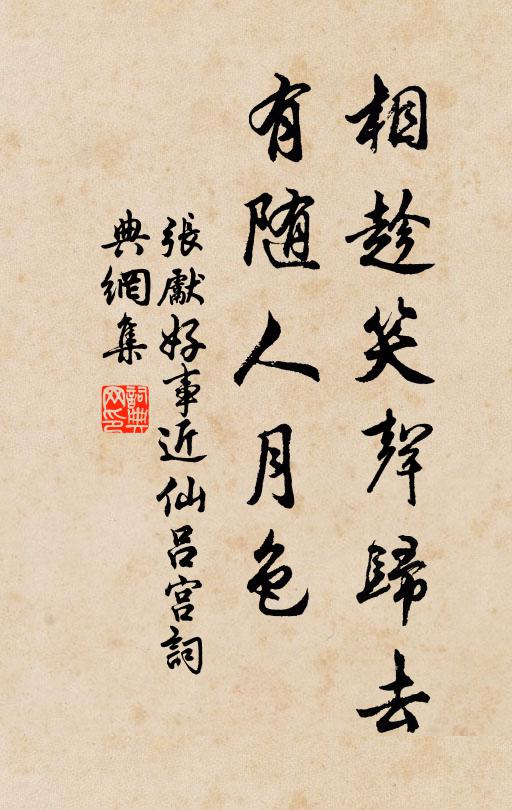 相趁笑聲歸去
有随人月色
張獻好事近仙吕宫詞
典網集
詞典网印